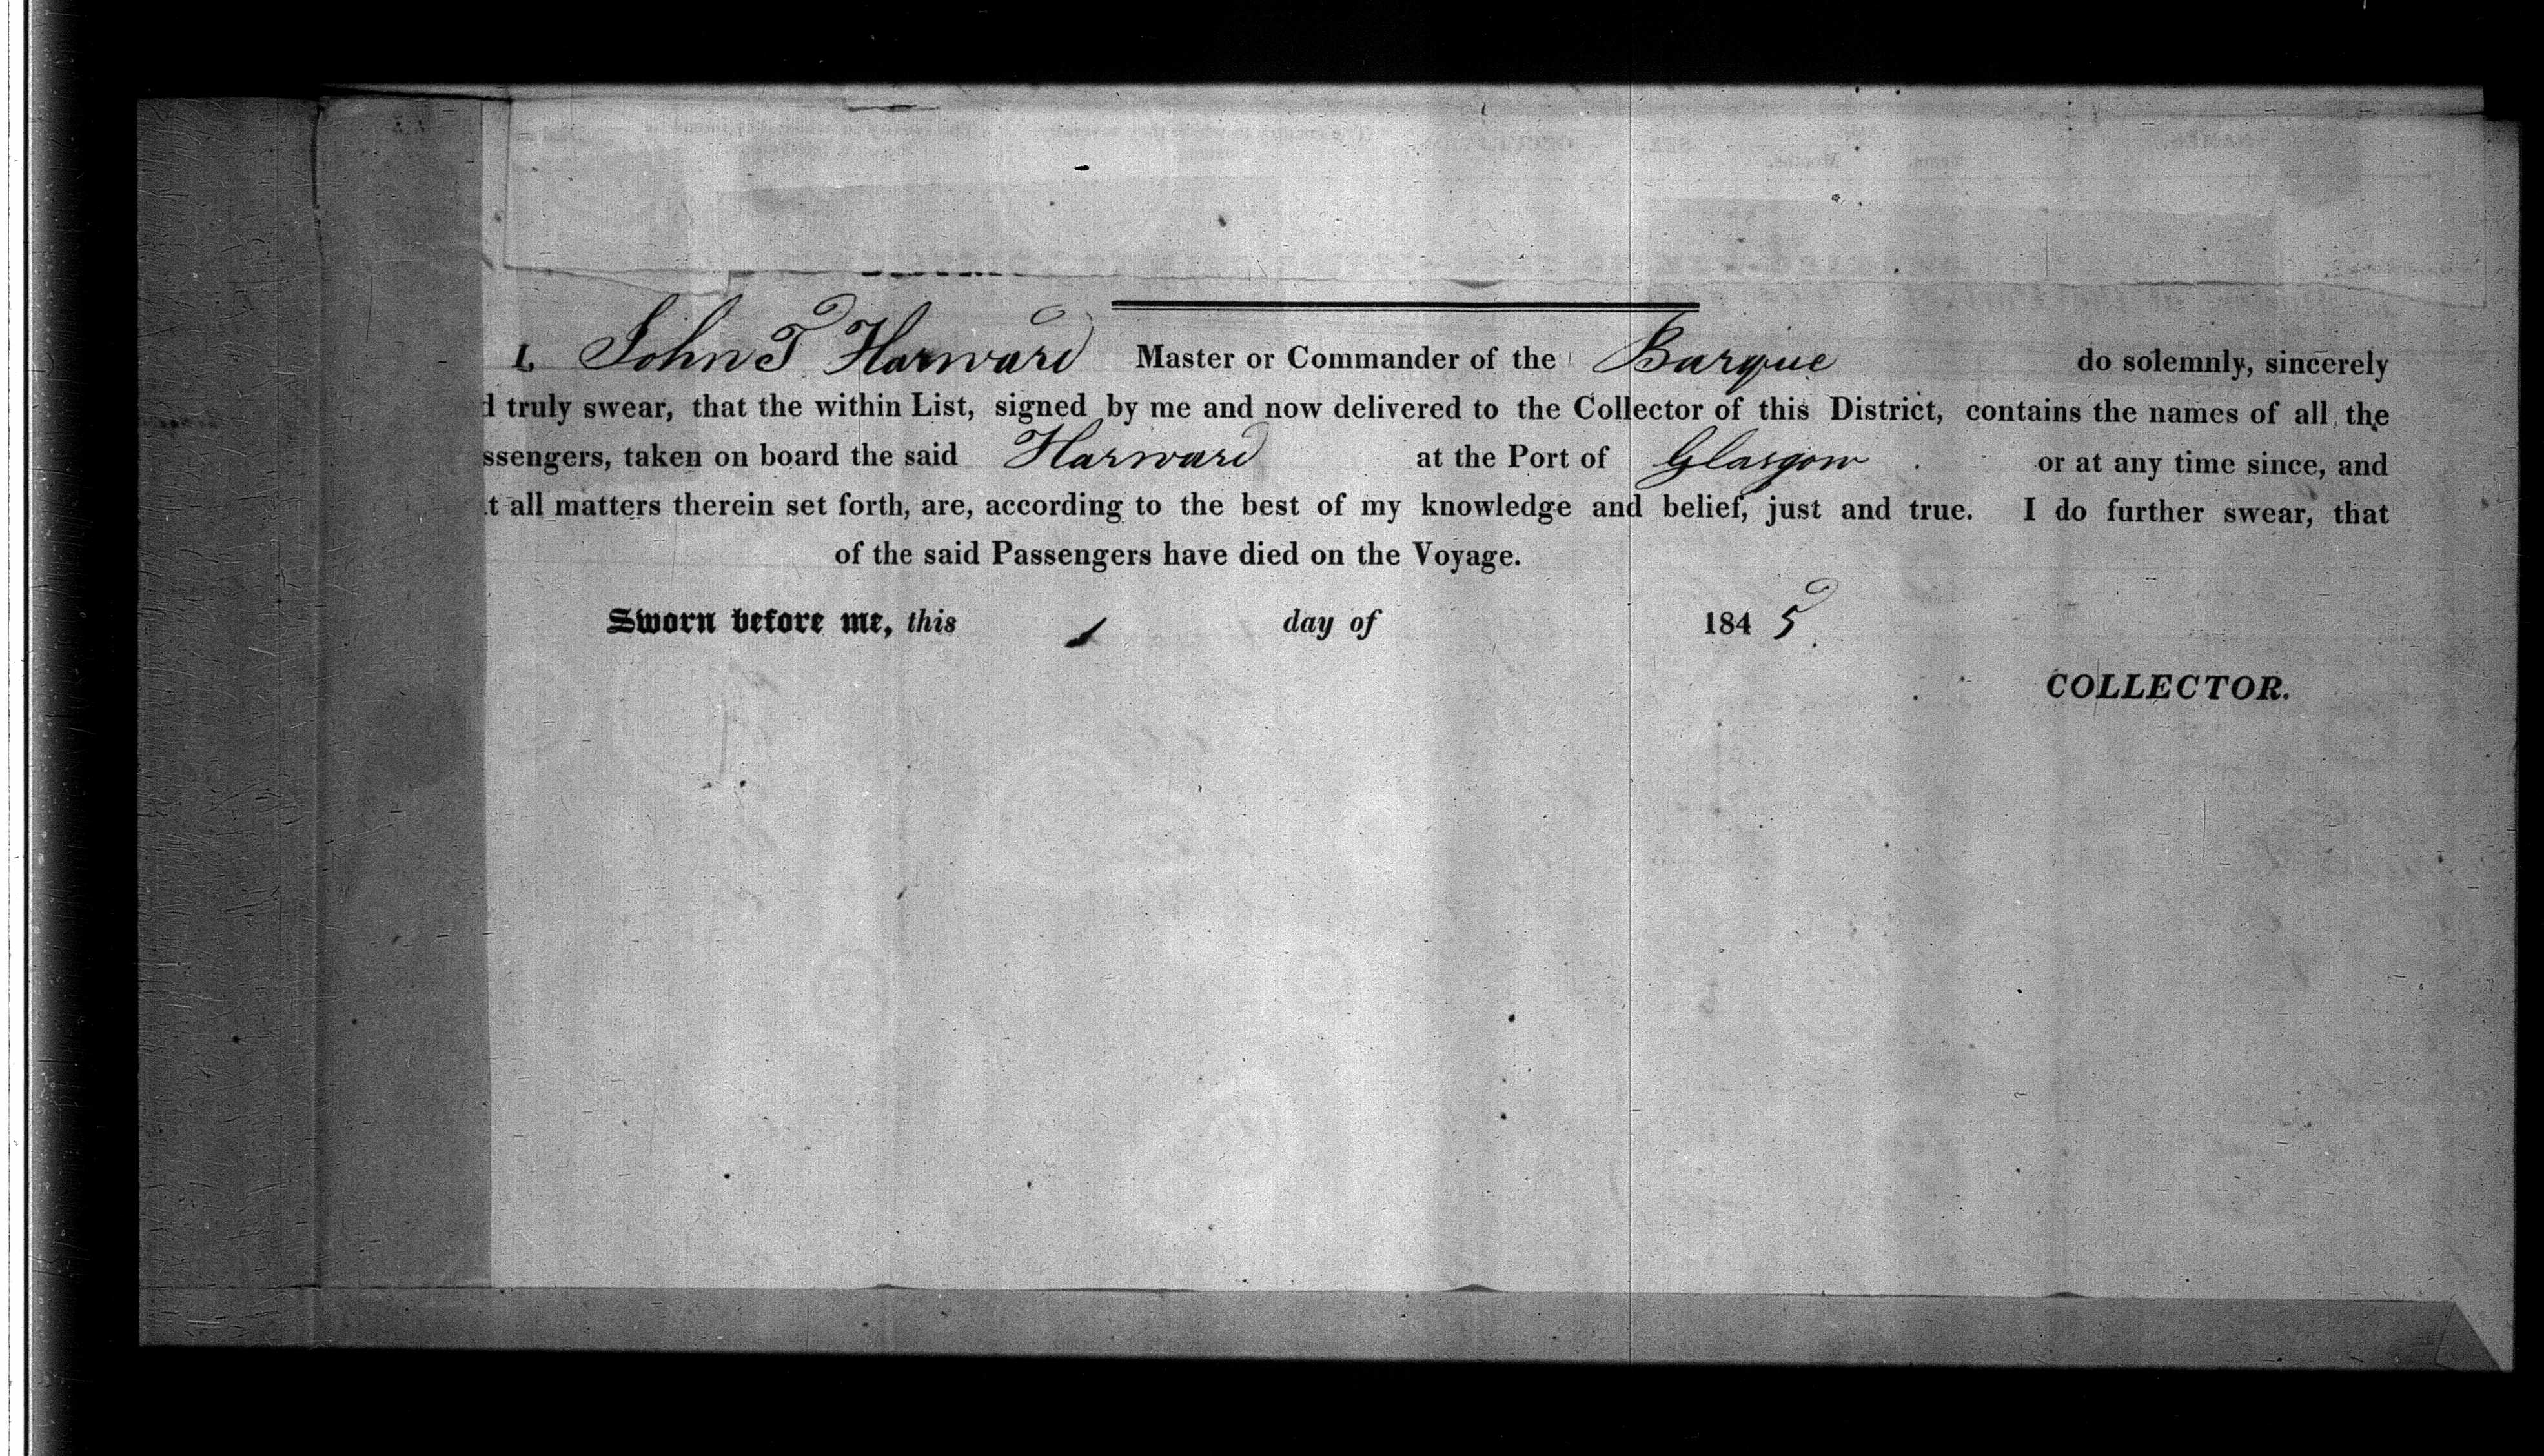 I, John T Harward Master or Commander of the Barque do solemnly, sincerely
d truly swear, that the within List, signed by me and now delivered to the Collector of this District, contains the names of all the
ssengers, taken on board the said Harward at the Port of Glasgow or at any time since, and
t all matters therein set forth, are, according to the best of my knowledge and belief, just and true. I do further swear, that
of the said Passengers have died on the Voyage.
Sworn before me, this day of 1845
COLLECTOR.